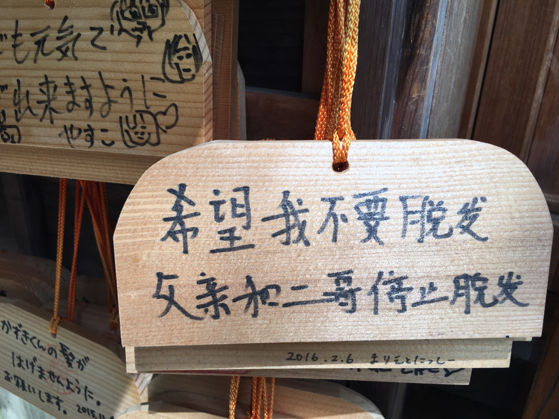 でも元気で
出来ますように
やすこ
希望我不要脱发
父亲和二哥停止脱发
2016.2.6
かずきくんの髪が
はげませんように。
お願いします。2015.11